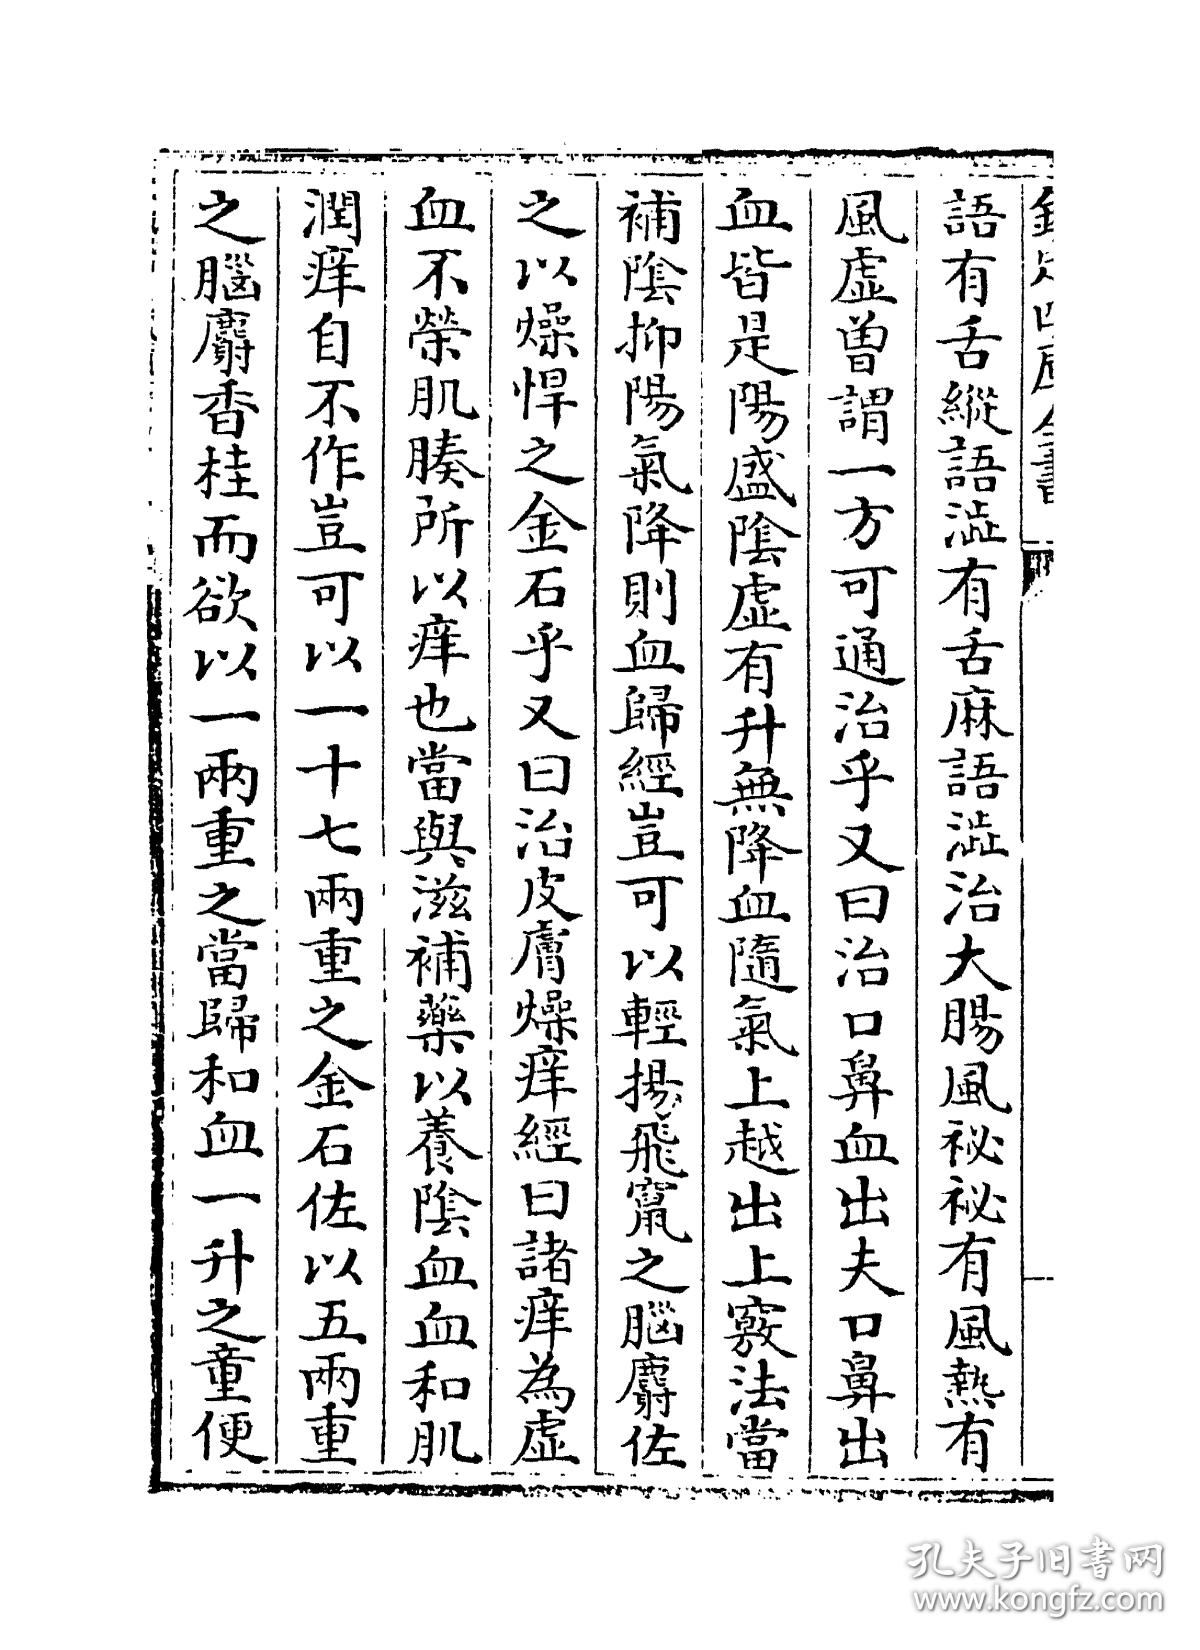 欽定四庫全書
語有舌縱語澁有舌麻語澁治大腸風祕祕有風熱有
風虛曾謂一方可通治乎又曰治口鼻血出夫口鼻出
血皆是陽盛陰虛有升無降血隨氣上越出上竅法當
補陰抑陽氣降則血歸經豈可以輕揚飛竄之腦麝佐
之以燥悍之金石乎又曰治皮膚燥痒經曰諸痒為虛
血不榮肌腠所以痒也當與滋補藥以養陰血血和肌
潤痒自不作豈可以一十七兩重之金石佐以五兩重
之腦麝香桂而欲以一兩重之當歸和血一升之童便
孔夫子旧書网
www.kongfz.com